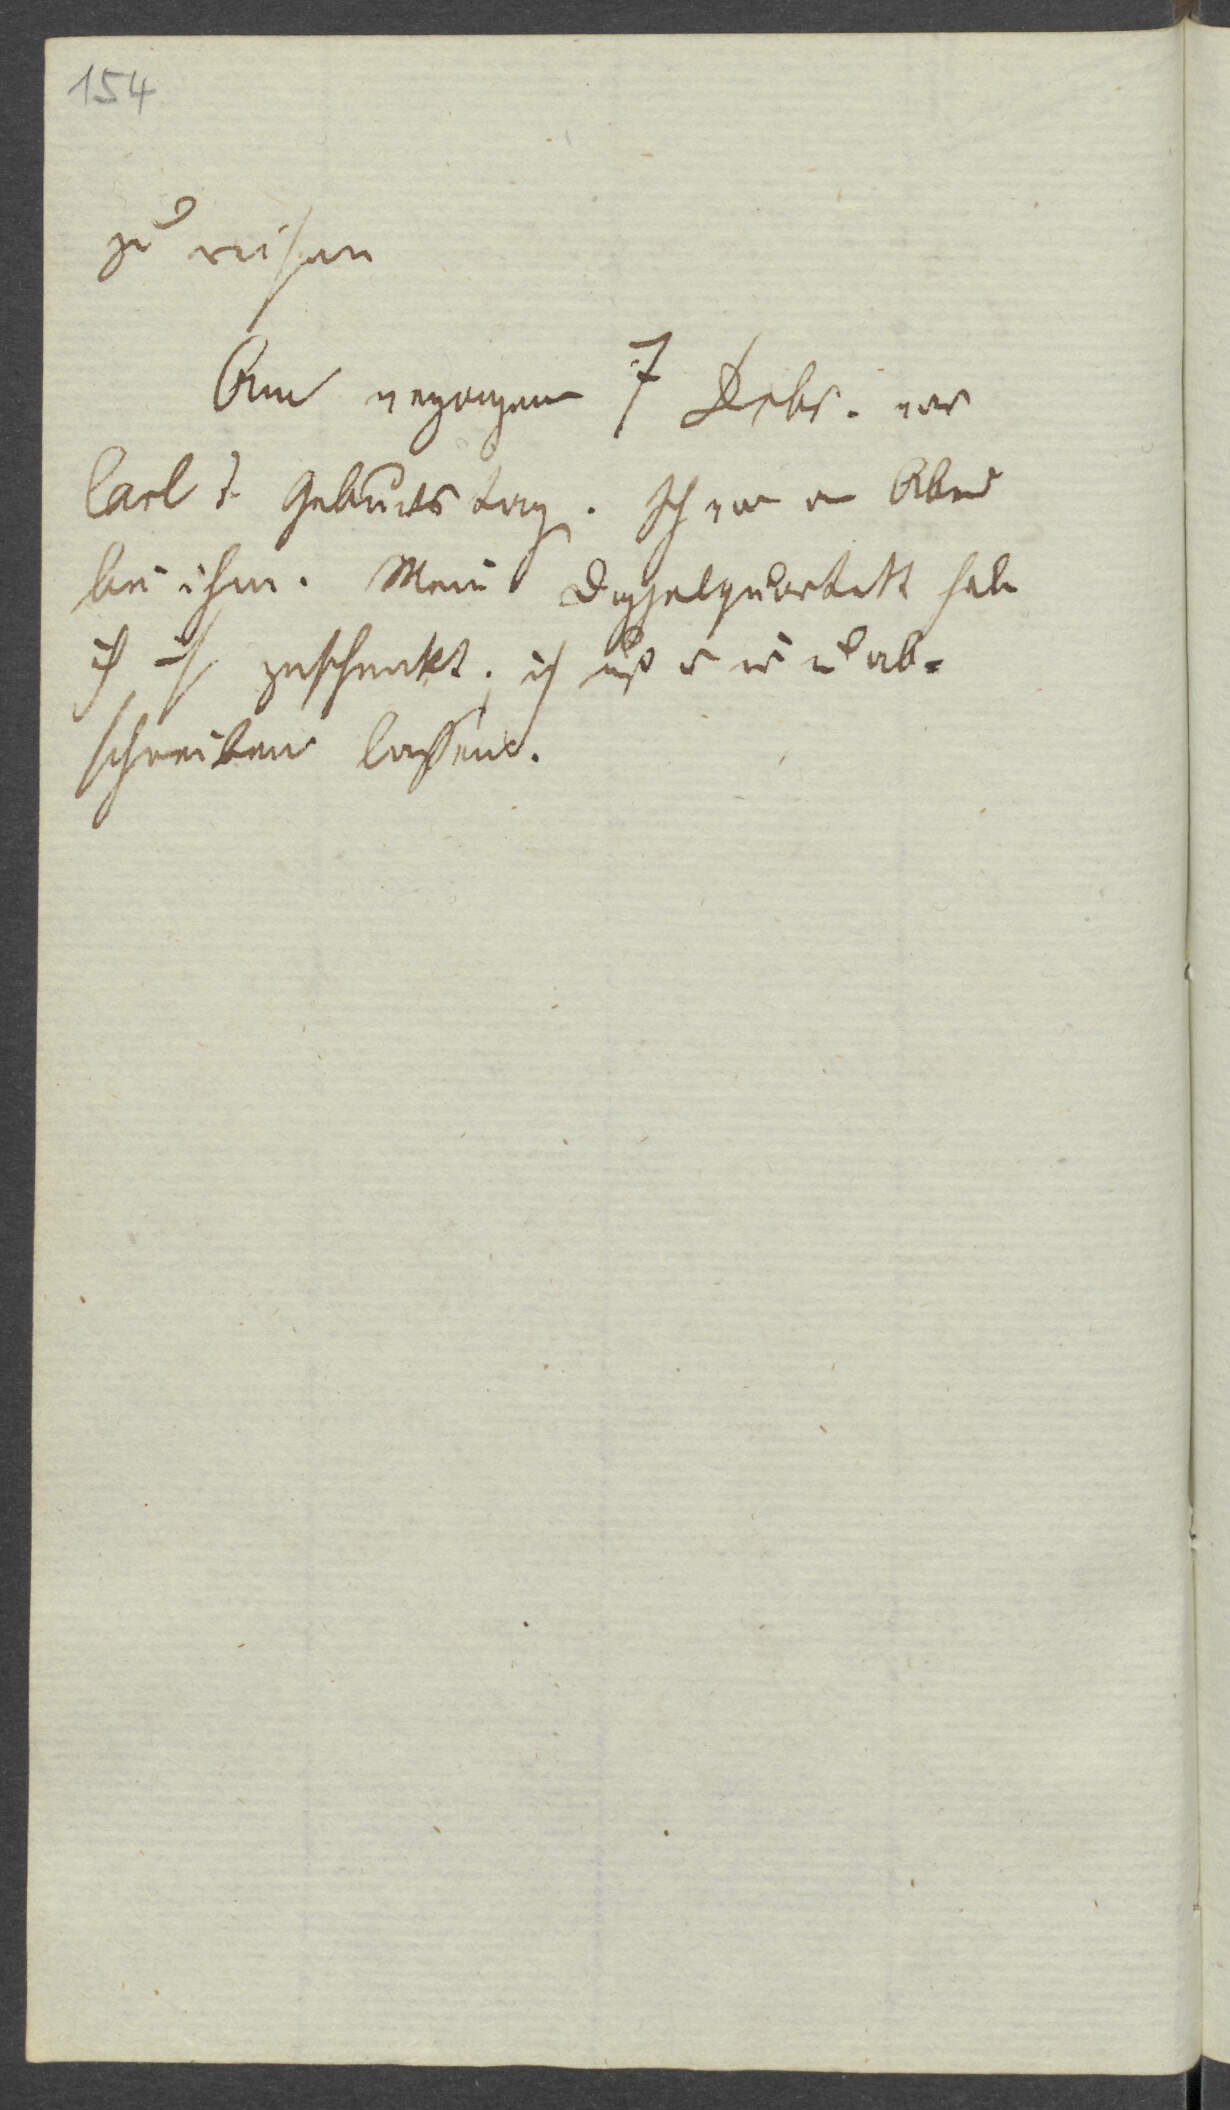 154
zu reisen
Am vergangenen 7 Debr. war
Carl's Geburtstag. Ich war am Abend
bei ihm. Mein Doppelquartett habe
ich ihm geschenkt; ich muß es mir ab-
schreiben lassen.